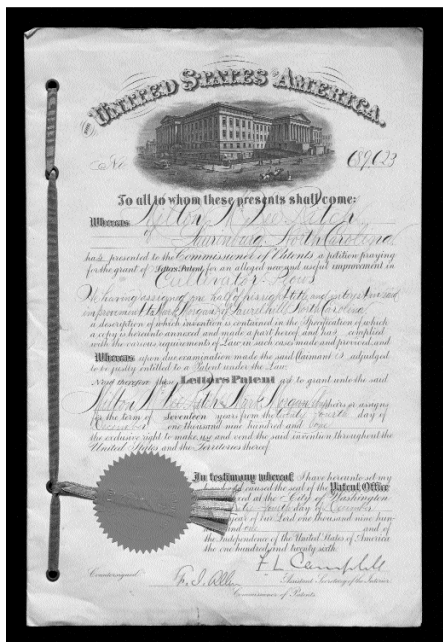 UNITED STATES OF AMERICA.
No. 689,623
To all to whom these presents shall come:
Whereas Milton
of Laurinburg, North Carolina
has presented to the Commissioner of Patents a petition praying
for the grant of Letters Patent for an alleged new and useful improvement in
Cultivator Plows
he having assigned one half of his right, title, and interest in said
improvement to Mark Morgan of Laurel hill, North Carolina
a description of which invention is contained in the Specification of which
a copy is hereunto annexed and made a part hereof, and has complied
with the various requirements of Law in such cases made and provided, and
Whereas upon due examination made the said Claimant is adjudged
to be justly entitled to a Patent under the Law.
Now therefore these Letters Patent are to grant unto the said
Milton Mark Morgan, heirs or assigns
for the term of Seventeen years from the twenty fourth day of
December one thousand nine hundred and one
the exclusive right to make, use and vend the said invention throughout the
United States and the Territories thereof.
In testimony whereof I have hereunto set my
hand and caused the seal of the Patent Office
ed at the City of Washington
fourth day of December
year of our Lord one thousand nine hun-
and one and of
the Independence of the United States of America
the one hundred and twenty sixth.
F. L. Campbell
Countersigned F. I. Allen Assistant Secretary of the Interior
Commissioner of Patents.